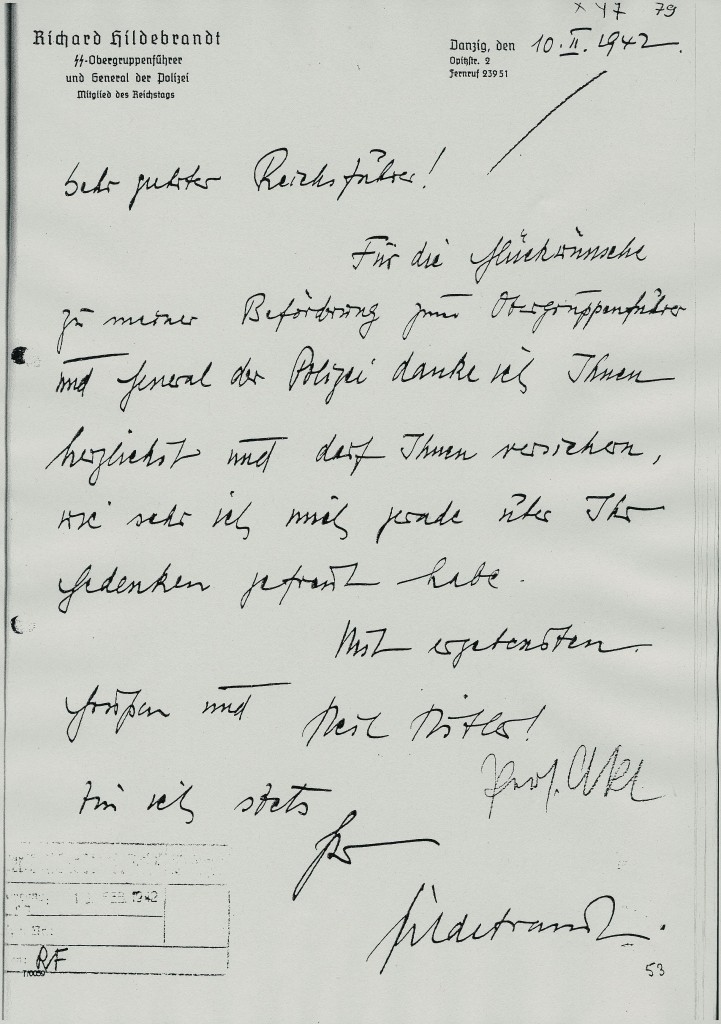 X 47 79
Richard Hildebrandt
SS-Obergruppenführer
und General der Polizei
Mitglied des Reichstags
Danzig, den 10.II.1942.
Opitzstr. 2
Fernruf 23951
Sehr geehrter Reichsführer!
Für die Glückwünsche
zu meiner Beförderung zum Obergruppenführer
und General der Polizei danke ich Ihnen
herzlichst und darf Ihnen versichern,
wie sehr ich mich gerade über Ihr
Gedenken gefreut habe.
Mit ergebensten
Grüßen und Heil Hitler!
bin ich stets
Ihr
Hildebrandt.
FEB. 1942
RF
53